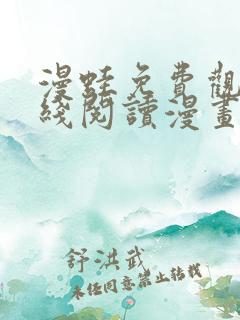 漫蛙免費觀
綫閱讀漫畫
舒洪武
未经同意禁止转载